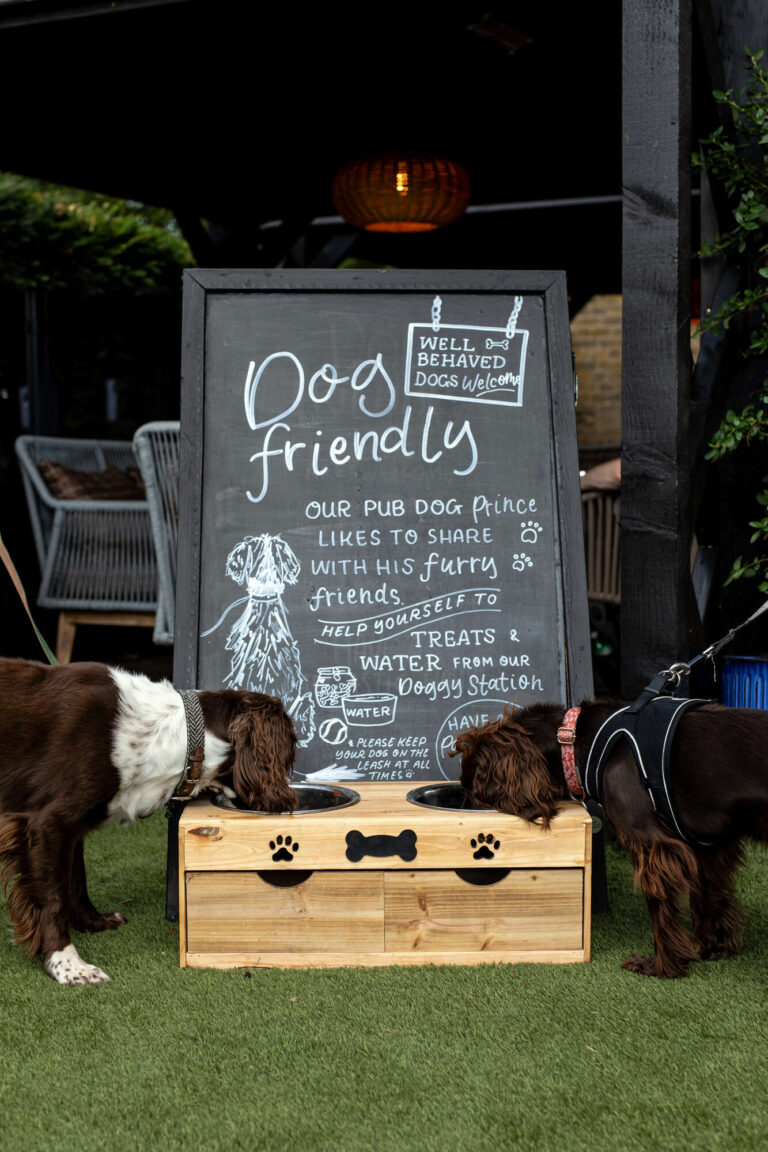 WELL
BEHAVED
DOGS Welcome
Dog
friendly
OUR PUB DOG Prince
LIKES TO SHARE
WITH HIS furry
friends.
HELP YOURSELF TO
TREATS &
WATER FROM OUR
Doggy Station
WATER
HAVE
PLEASE KEEP
YOUR DOG ON THE
LEASH AT ALL
TIMES